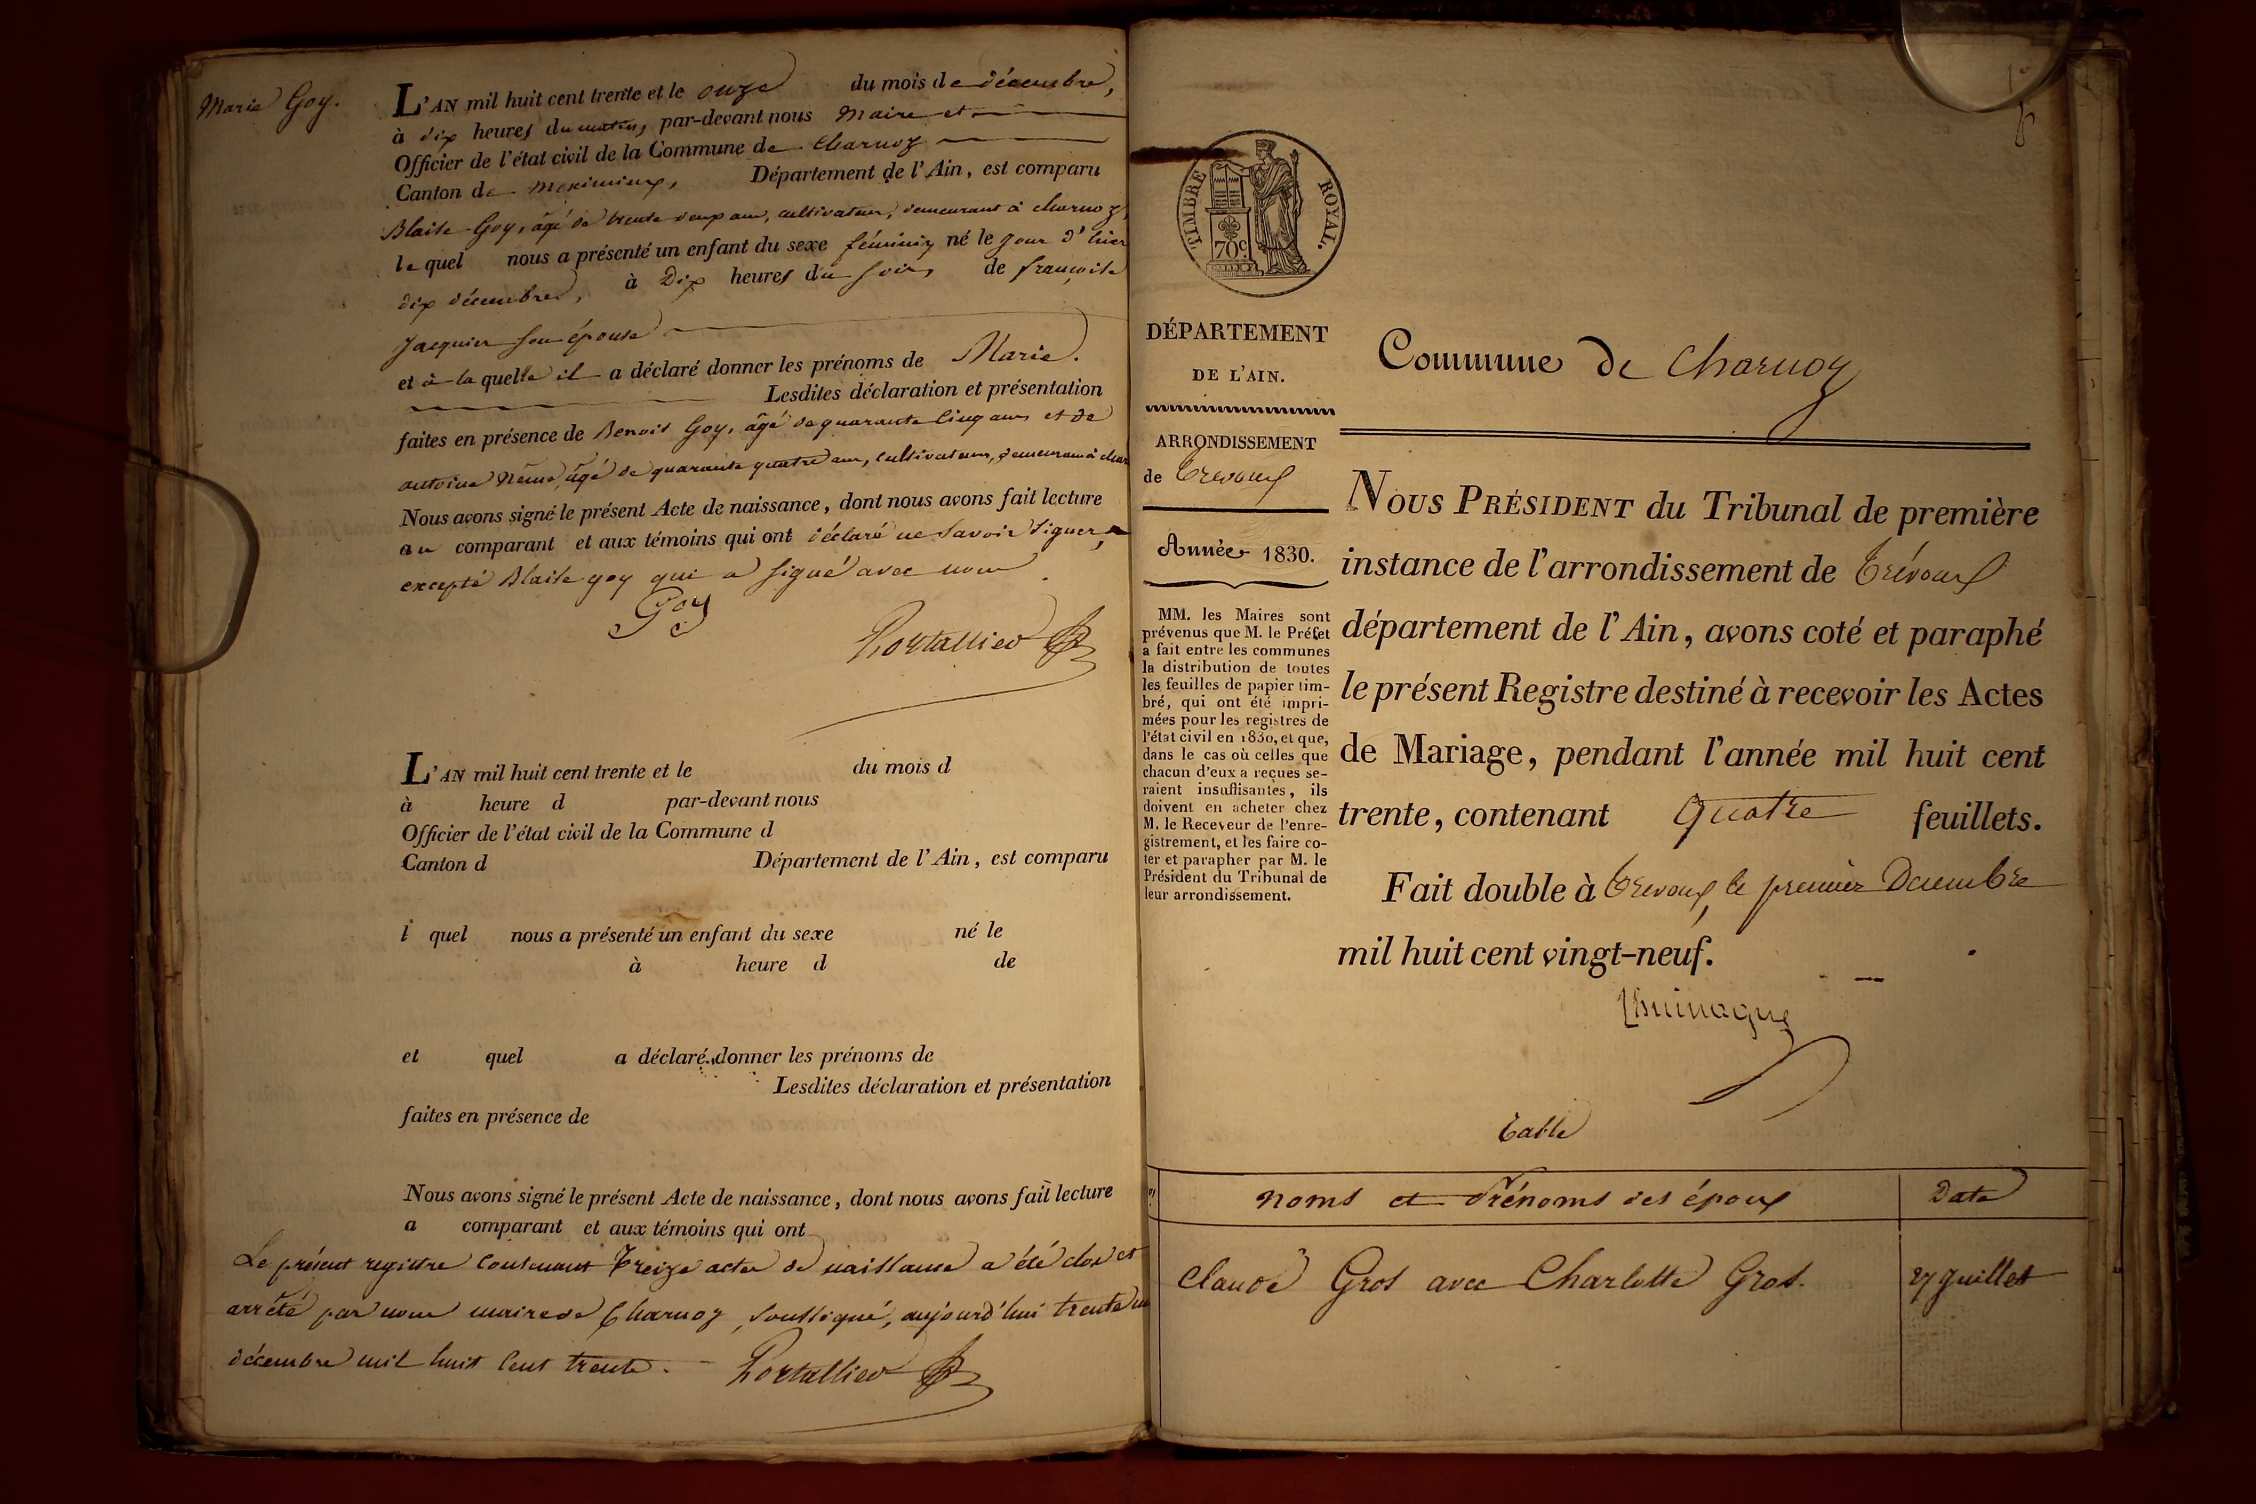 Marie Goy.
L'AN mil huit cent trente et le onze du mois de décembre,
à dix heures du matin, par-devant nous Maire et
Officier de l'état civil de la Commune de Charnoz
Canton de Meximieux, Département de l'Ain, est comparu
Blaise Goy, âgé de trente deux ans, cultivateur, demeurant à charnoz,
lequel nous a présenté un enfant du sexe féminin né le jour d'hier
dix décembre, à Dix heures du soir, de françoise
Jacquier son épouse
et à laquelle il a déclaré donner les prénoms de Marie.
Lesdites déclaration et présentation
faites en présence de Benoit Goy, âgé de quarante cinq ans et de
antoine âgé de quarante quatre ans, cultivateurs, demeurant à char
Nous avons signé le présent Acte de naissance, dont nous avons fait lecture
au comparant et aux témoins qui ont déclaré ne savoir signer,
excepté Blaise goy qui a signé avec nous.
Goy
Portallier
L'AN mil huit cent trente et le du mois d
à heure d par-devant nous
Officier de l'état civil de la Commune d
Canton d Département de l'Ain, est comparu
l quel nous a présenté un enfant du sexe né le
à heure d de
et quel a déclaré donner les prénoms de
Lesdites déclaration et présentation
faites en présence de
Nous avons signé le présent Acte de naissance, dont nous avons fait lecture
a comparant et aux témoins qui ont
Le présent registre contenant Treize actes de naissance a été clos et
arrêté par nous maire de Charnoz, soussigné, aujourd'hui trente un
décembre mil huit cent trente. Portallier
TIMBRE ROYAL.
70c.
DÉPARTEMENT
DE L'AIN.
ARRONDISSEMENT
de Trevoux
Année 1830.
MM. les Maires sont
prévenus que M. le Préfet
a fait entre les communes
la distribution de toutes
les feuilles de papier tim-
bré, qui ont été impri-
mées pour les registres de
l'état civil en 1830, et que,
dans le cas où celles que
chacun d'eux a reçues se-
raient insuffisantes, ils
doivent en acheter chez
M. le Receveur de l'enre-
gistrement, et les faire co-
ter et parapher par M. le
Président du Tribunal de
leur arrondissement.
Commune de Charnoz
NOUS PRÉSIDENT du Tribunal de première
instance de l'arrondissement de Trévoux
département de l'Ain, avons coté et paraphé
le présent Registre destiné à recevoir les Actes
de Mariage, pendant l'année mil huit cent
trente, contenant quatre feuillets.
Fait double à Trevoux, le premier Decembre
mil huit cent vingt-neuf.
Table
Noms et Prénoms des époux Date
Claude Gros avec Charlotte Gros. 27 Juillet